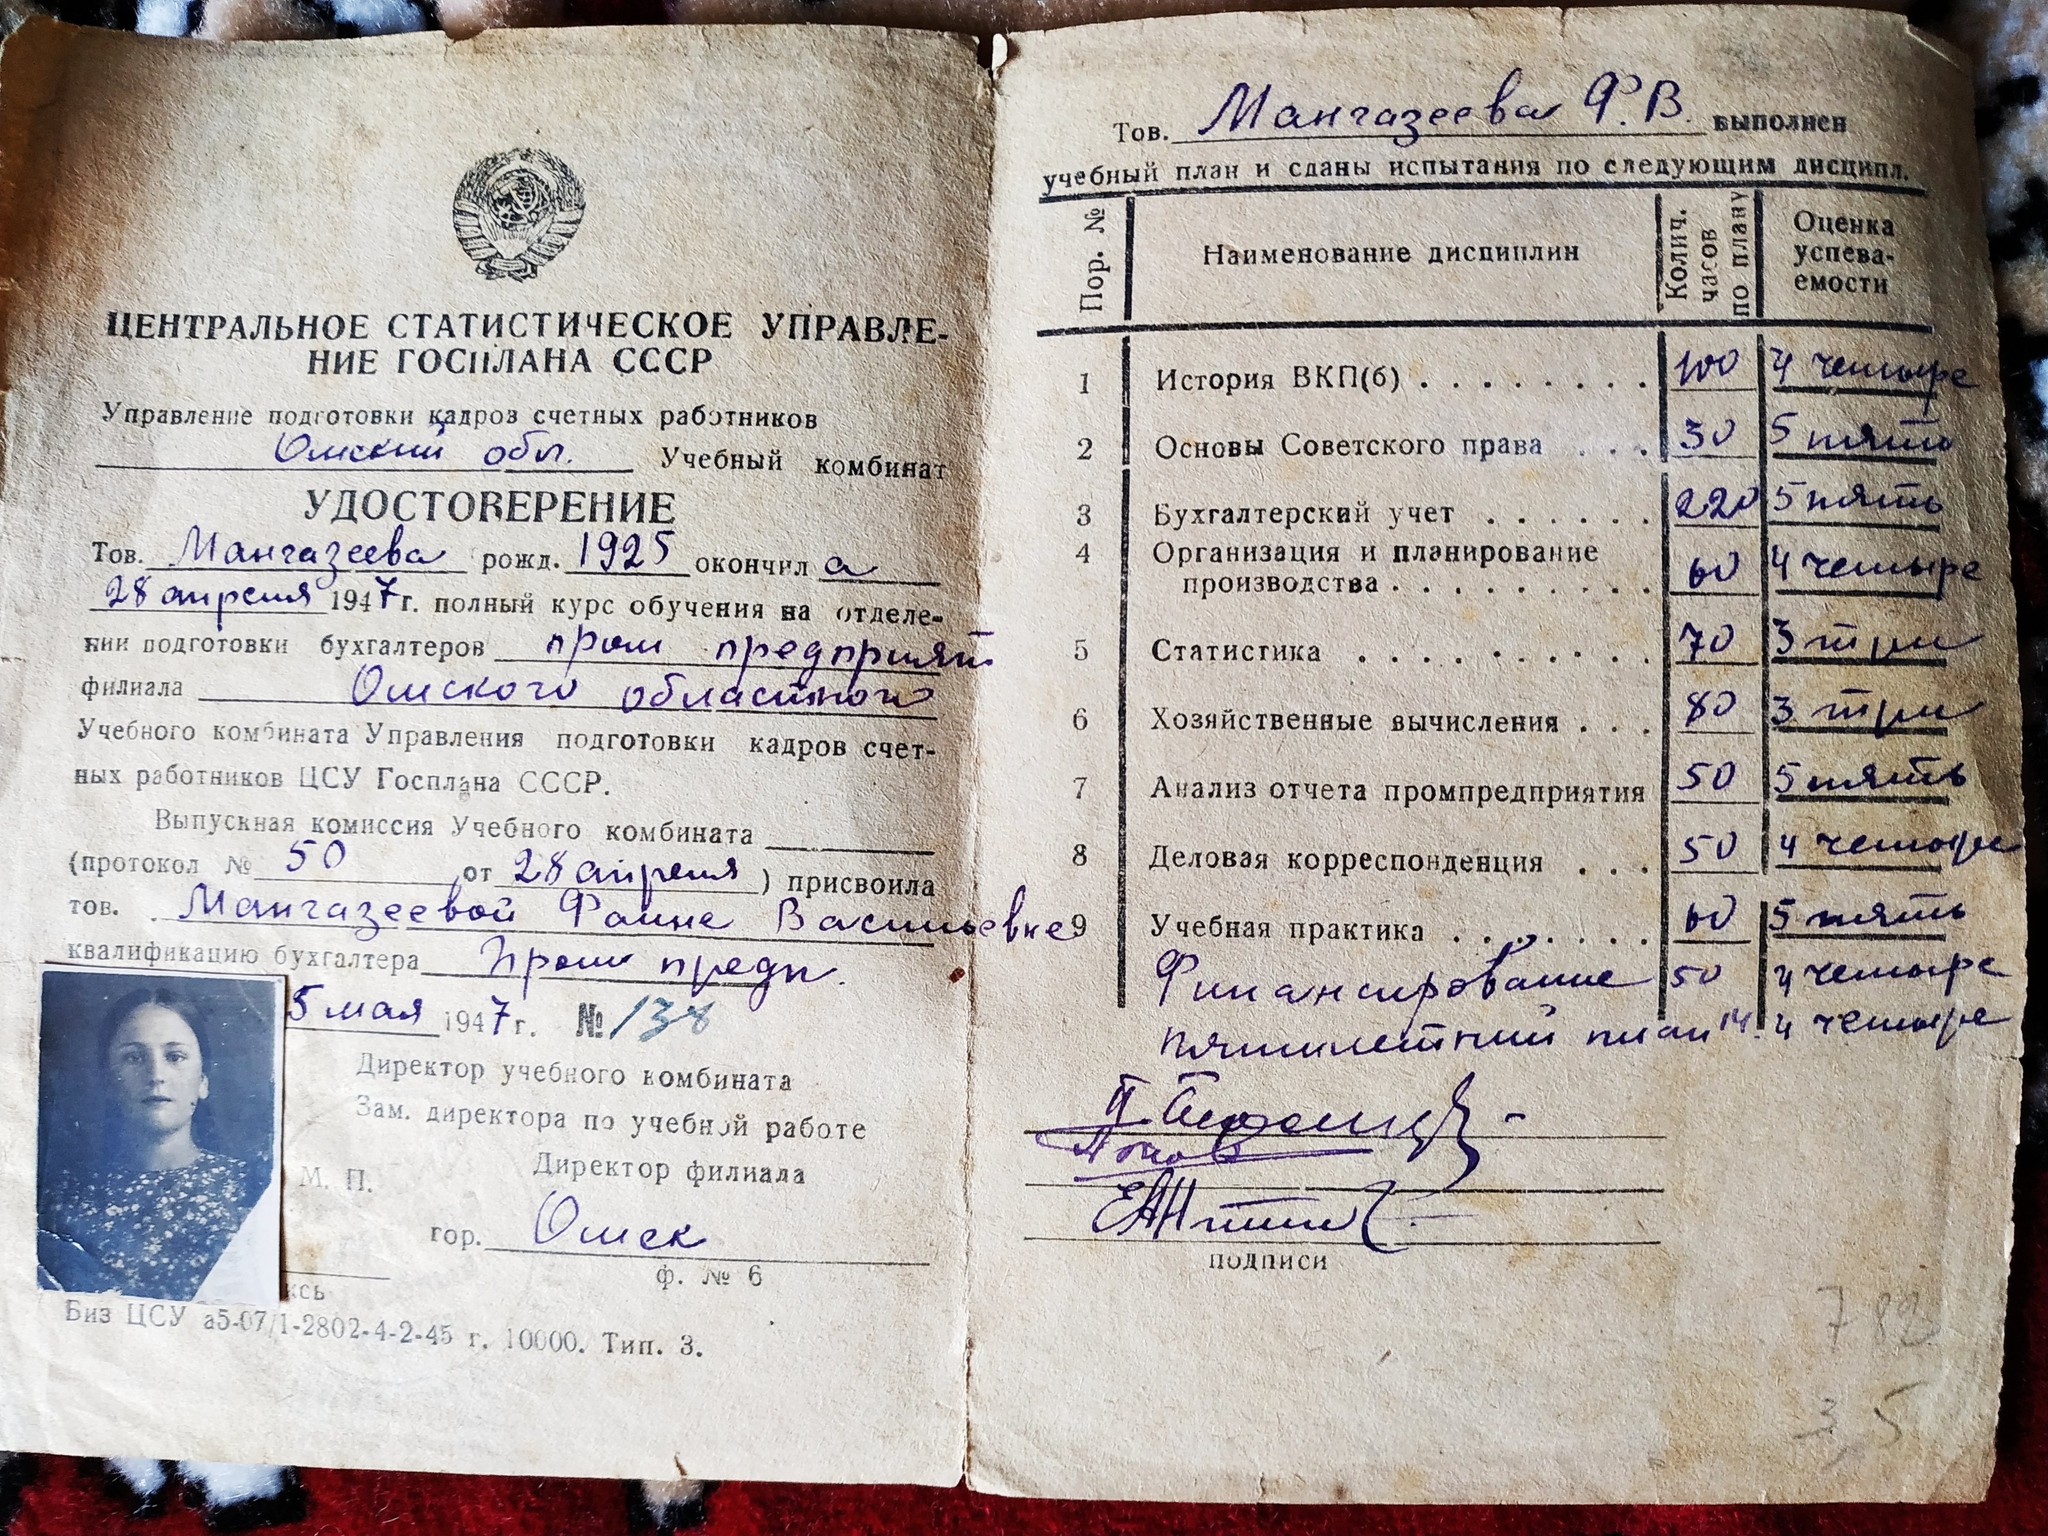 ЦЕНТРАЛЬНОЕ СТАТИСТИЧЕСКОЕ УПРАВЛЕ-
НИЕ ГОСПЛАНА СССР
Управление подготовки кадров счетных работников
Омский обл. Учебный комбинат
УДОСТОВЕРЕНИЕ
Тов. Мангазеева рожд. 1925 окончил а
28 апреля 1947 г. полный курс обучения на отделе-
нии подготовки бухгалтеров пром предприят
филиала Омского областного
Учебного комбината Управления подготовки кадров счет-
ных работников ЦСУ Госплана СССР.
Выпускная комиссия Учебного комбината
(протокол № 50 от 28 апреля) присвоила
тов. Мангазеевой Фаине Васильевне
квалификацию бухгалтера Пром предп.
5 мая 1947 г. № 138
Директор учебного комбината
Зам. директора по учебной работе
М. П. Директор филиала
гор. Омск
ф. № 6
Биз ЦСУ а5-07/1-2802-4-2-45 г. 10000. Тип. 3.
Тов. Мангазеева Ф.В. выполнен
учебный план и сданы испытания по следующим дисципл.
Пор. № Наименование дисциплин Колич. часов по плану Оценка успева-
емости
1 История ВКП(б) . . . . . . . . 100 4 четыре
2 Основы Советского права . . . 30 5 пять
3 Бухгалтерский учет . . . . . . 220 5 пять
4 Организация и планирование
производства . . . . . . . . . 60 4 четыре
5 Статистика . . . . . . . . . . 70 3 три
6 Хозяйственные вычисления . . . 80 3 три
7 Анализ отчета промпредприятия 50 5 пять
8 Деловая корреспонденция . . . 50 4 четыре
9 Учебная практика . . . . . . . 60 5 пять
Финансирование 50 4 четыре
пятилетний план 14. 4 четыре
подписи
3,5